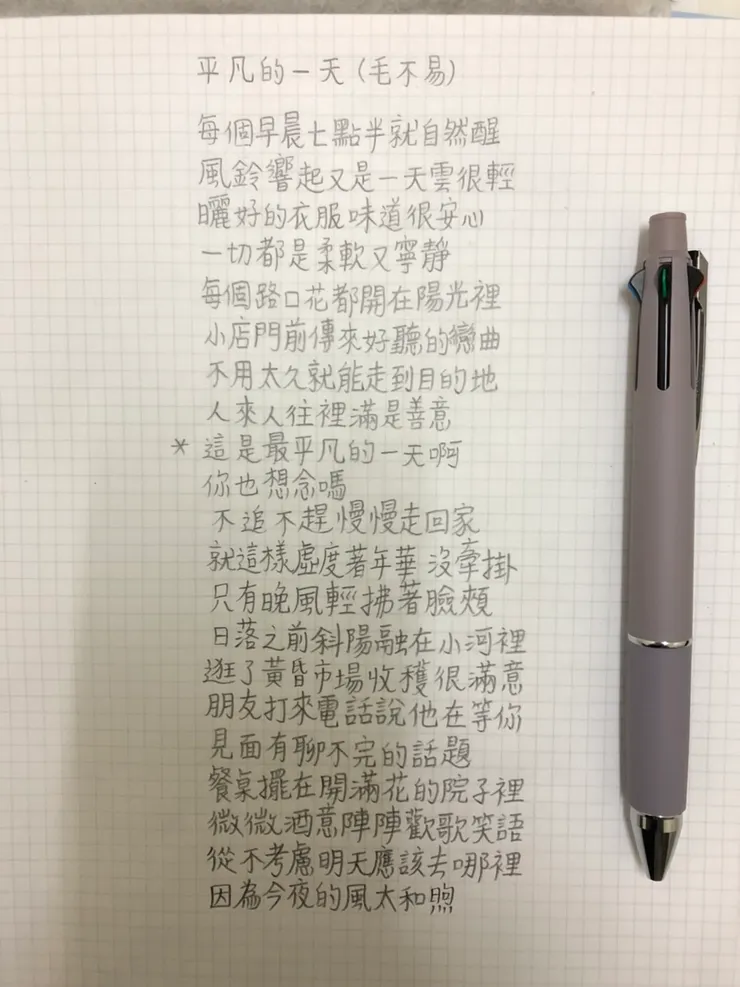 平凡的一天(毛不易)
每個早晨七點半就自然醒
風鈴響起又是一天雲很輕
曬好的衣服味道很安心
一切都是柔軟又寧靜
每個路口花都開在陽光裡
小店門前傳來好聽的戀曲
不用太久就能走到目的地
人來人往裡滿是善意
*這是最平凡的一天啊
你也想念嗎
不追不趕慢慢走回家
就這樣虛度著年華 沒牽掛
只有晚風輕拂著臉頰
日落之前斜陽融在小河裡
逛了黃昏市場收穫很滿意
朋友打來電話說他在等你
見面有聊不完的話題
餐桌擺在開滿花的院子裡
微微酒意陣陣歡歌笑語
從不考慮明天應該去哪裡
因為今夜的風太和煦